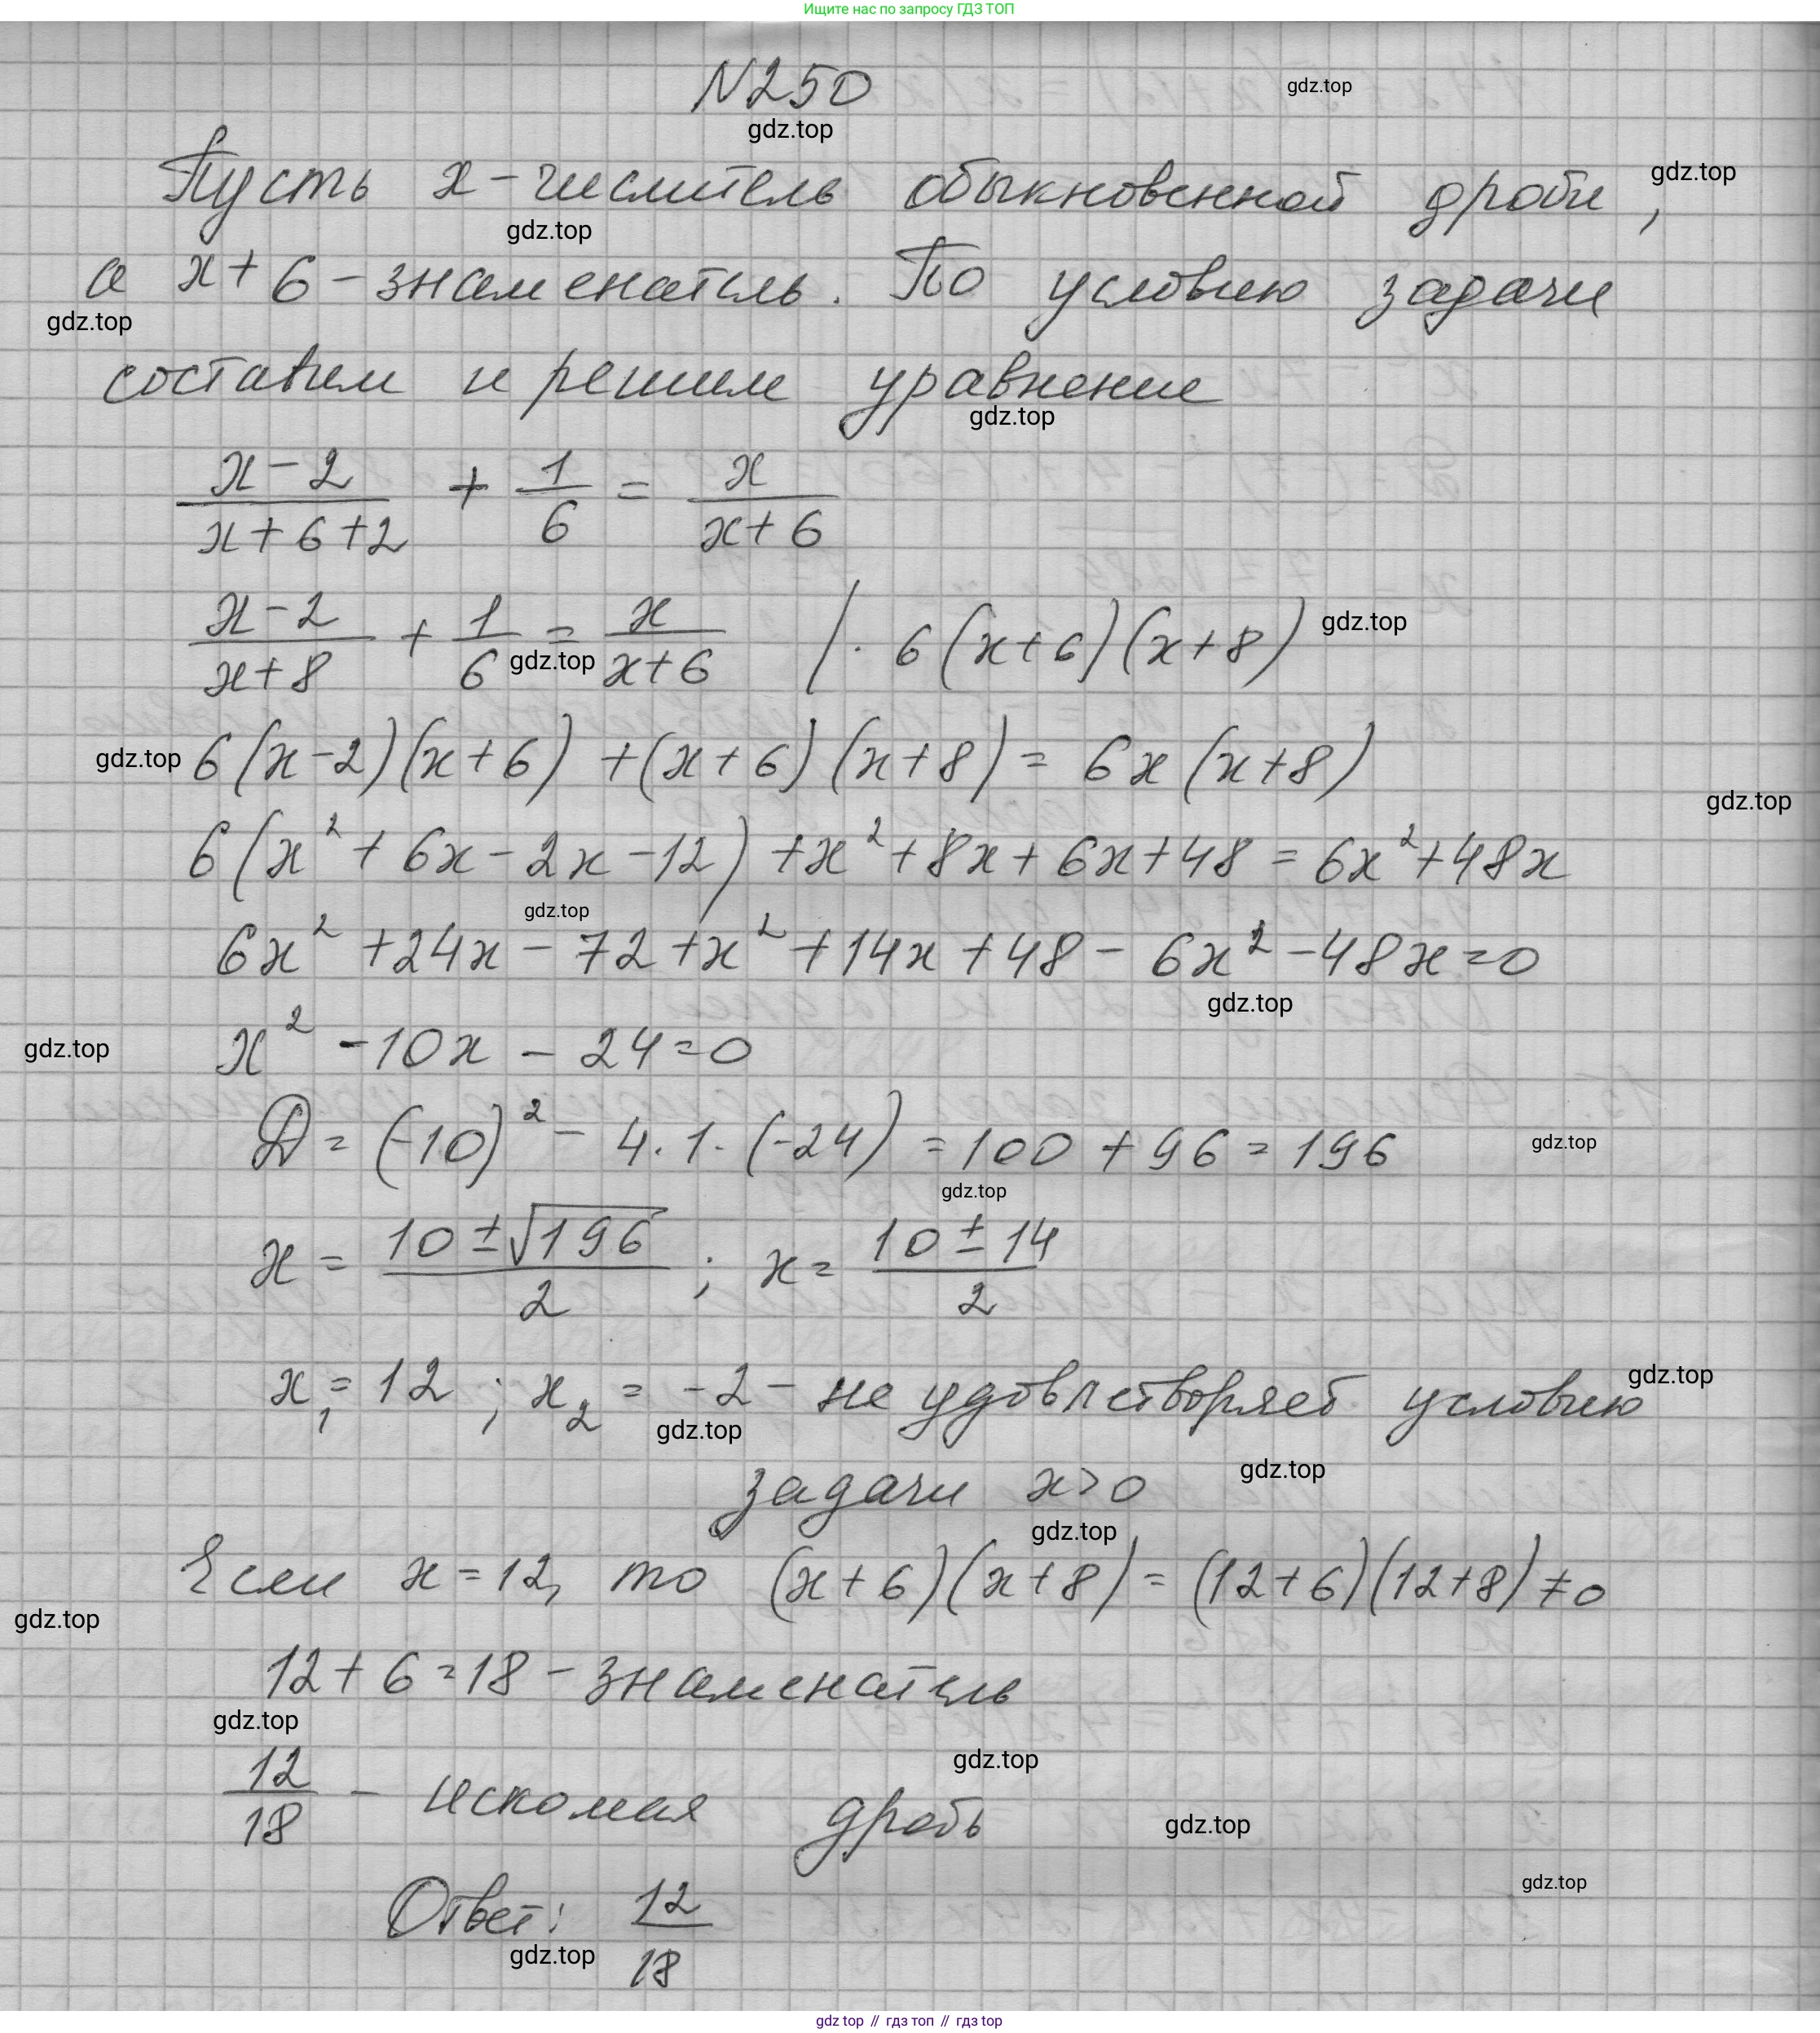 Ищите нас по запросу ГДЗ ТОП
N250
gdz.top
gdz.top
Пусть x - числитель обыкновенной дроби,
gdz.top
gdz.top
а x + 6 - знаменатель. По условию задачи
gdz.top
составим и решим уравнение
gdz.top
(x - 2)/(x + 6 + 2) + 1/6 = x/(x + 6)
(x - 2)/(x + 8) + 1/6 = x/(x + 6) / · 6(x + 6)(x + 8)
gdz.top
gdz.top
gdz.top
6(x - 2)(x + 6) + (x + 6)(x + 8) = 6x(x + 8)
gdz.top
6(x² + 6x - 2x - 12) + x² + 8x + 6x + 48 = 6x² + 48x
gdz.top
6x² + 24x - 72 + x² + 14x + 48 - 6x² - 48x = 0
gdz.top
gdz.top
x² - 10x - 24 = 0
D = (-10)² - 4 · 1 · (-24) = 100 + 96 = 196
gdz.top
gdz.top
x = (10 ± √196)/2 ; x = (10 ± 14)/2
x₁ = 12 ; x₂ = -2 - не удовлетворяет условию
gdz.top
gdz.top
задачи x > 0
gdz.top
gdz.top
Если x = 12, то (x + 6)(x + 8) = (12 + 6)(12 + 8) ≠ 0
gdz.top
12 + 6 = 18 - знаменатель
gdz.top
gdz.top
12/18 - искомая дробь
gdz.top
gdz.top
Ответ: 12/18
gdz.top
gdz.top // гдз топ // гдз top